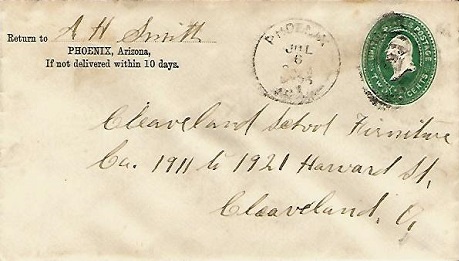 Return to A H Smith
PHOENIX, Arizona,
If not delivered within 10 days.
PHOENIX
JUL
6
ARIZ.
U.S. POSTAGE
TWO CENTS
Cleaveland School Furniture
Co. 1911 to 1921 Harvard St,
Cleaveland, O,